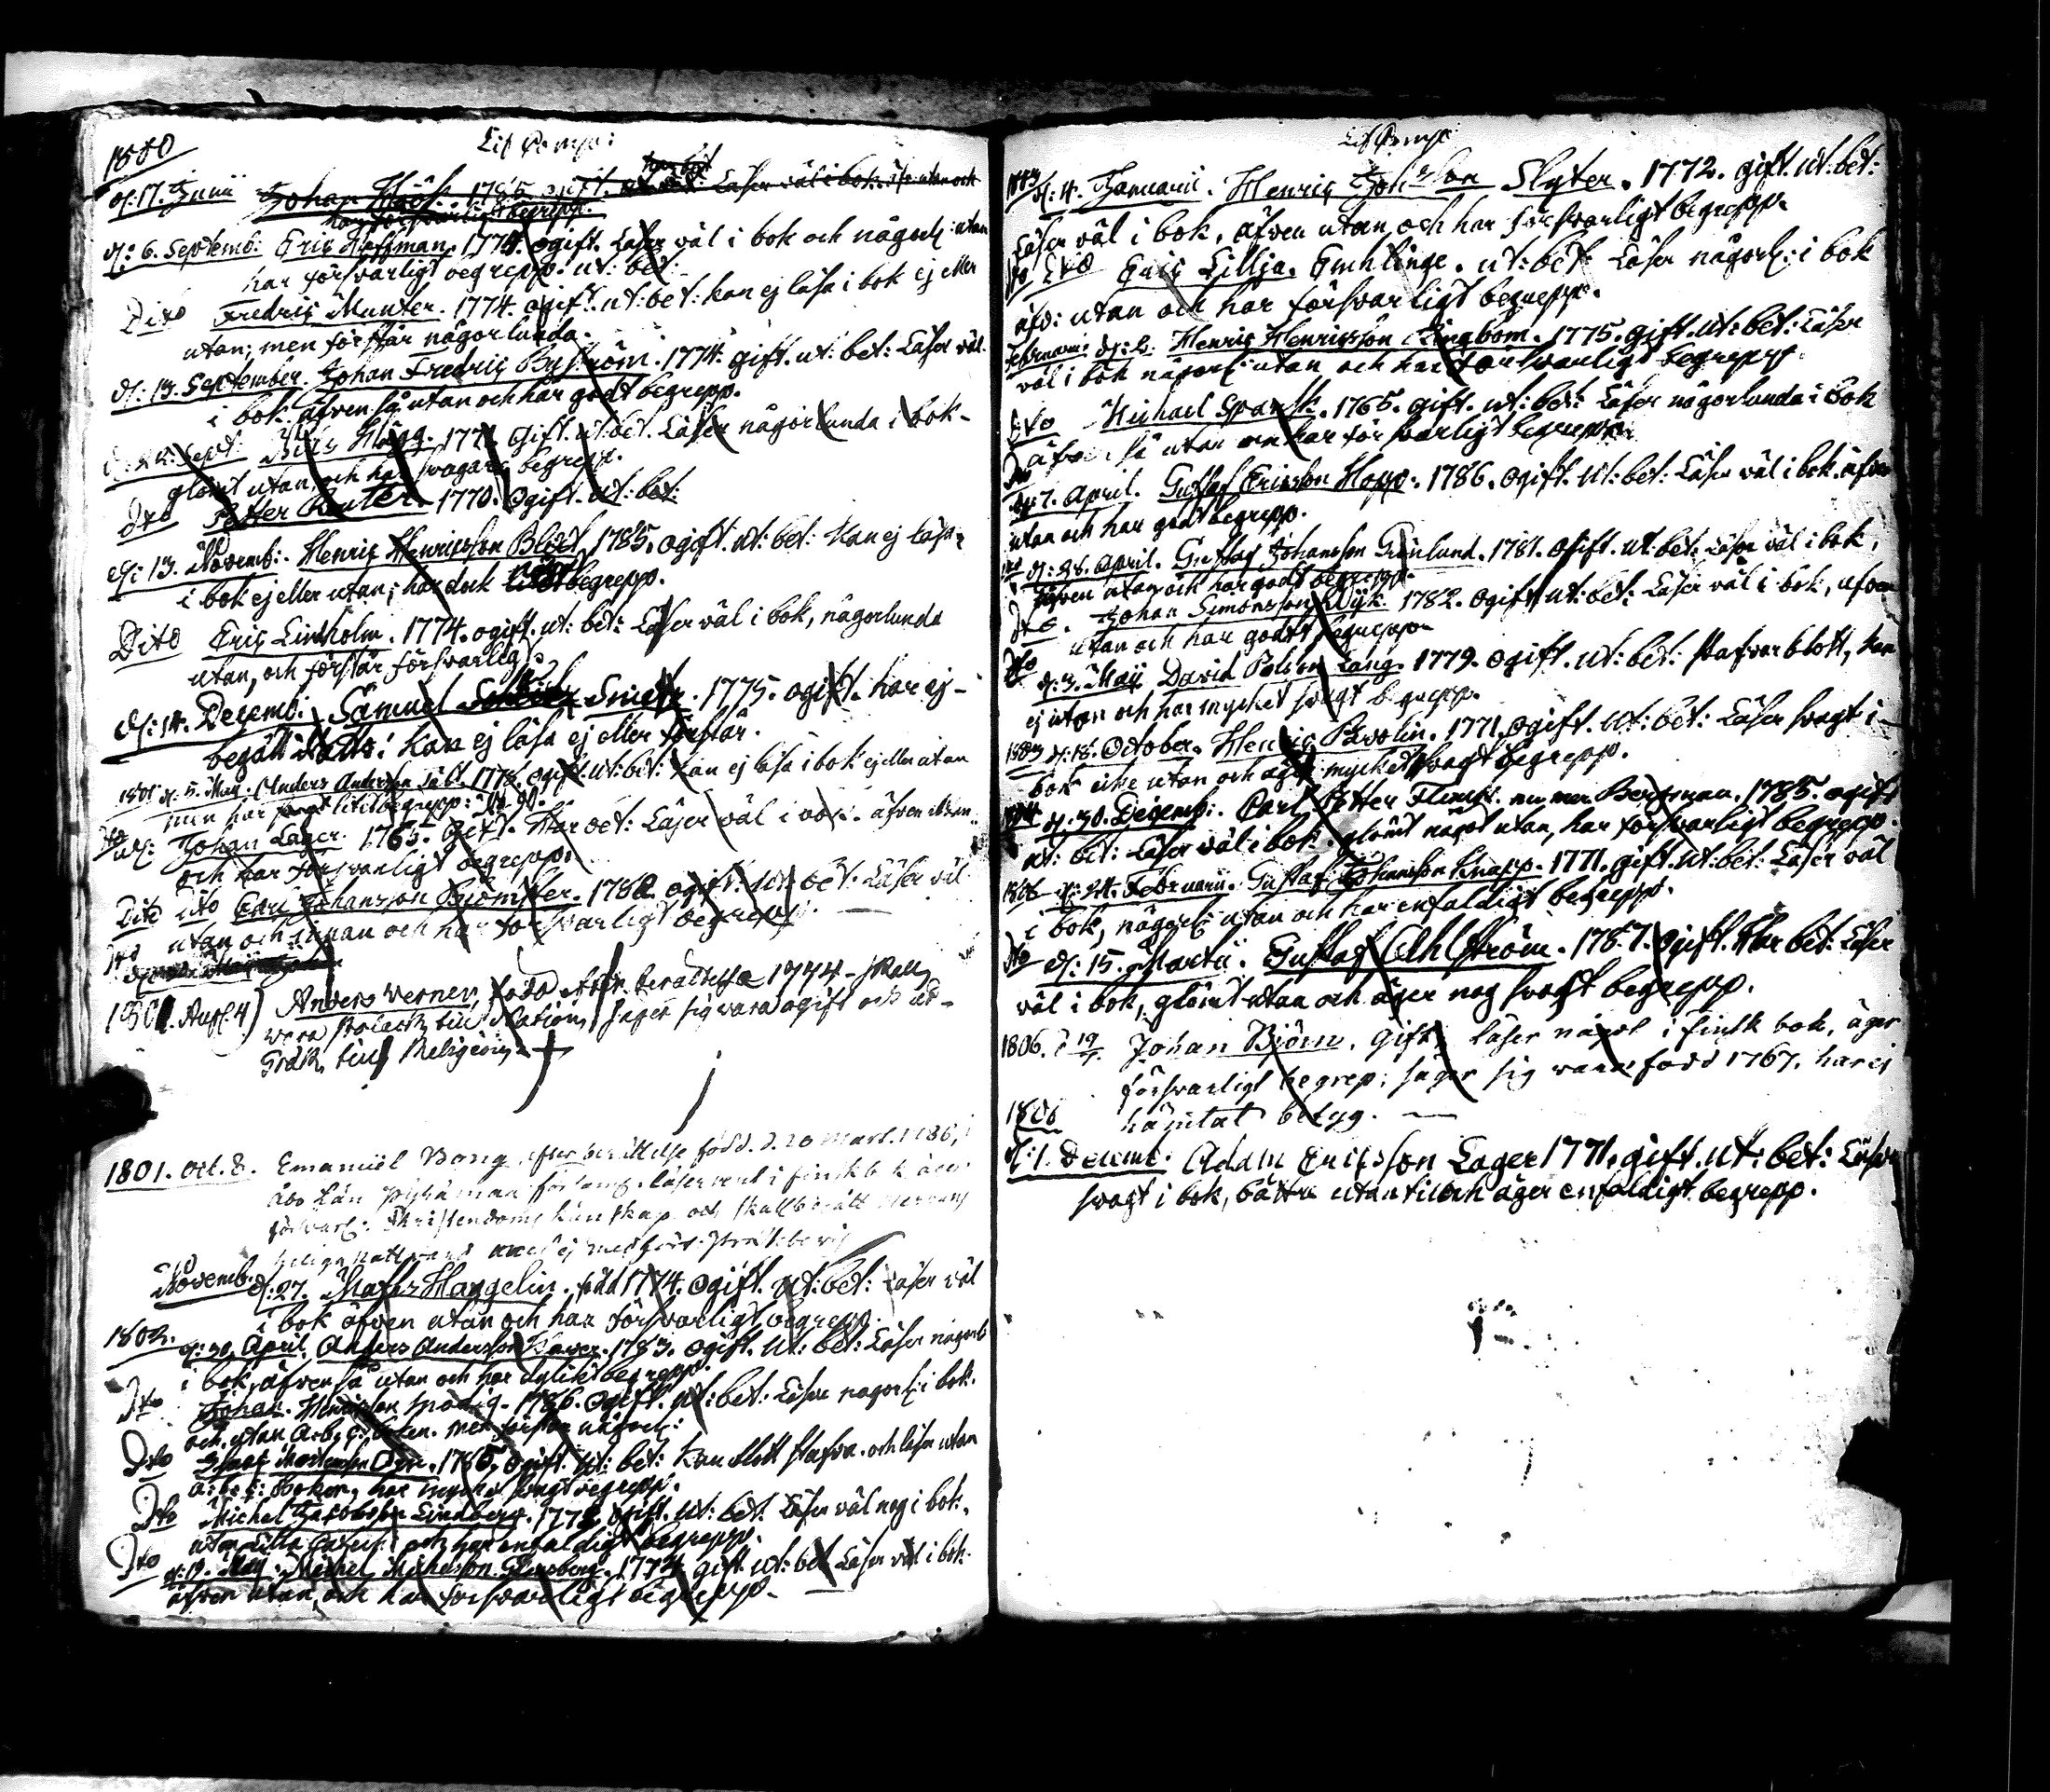 1800
Lif Comp:
d: 17. Junii Johan Höök. 1785 gift. har bet Läser väl i bok. äfv. utan och
har försvarligt begrepp.
d: 6. Septemb: Eric Hoffman. 1770. ogift. Läser väl i bok och någorl: utan
har försvarligt begrepp. ut: bet:
Dito Fredric Munter. 1774. ogift. ut: bet: kan ej läsa i bok ej eller
utan; men förstår någorlunda.
d: 13. September. Johan Fredric Byström. 1774. gift. ut: bet: Läser väl
i bok. äfven så utan och har godt begrepp.
d: 22. Sept: Nils Hägg. 1771. Gift. ut: bet. Läser någorlunda i bok-
glömt utan, och har svagare begrepp.
Dto Petter Reuter. 1770. Ogift. ut: bet:
d: 13. Novemb: Henric Henricsson Blad 1785. ogift. ut: bet: Kan ej läsa
i bok ej eller utan; har dock begrepp.
Dito Eric Lindholm. 1774. ogift. ut: bet: Läser väl i bok, någorlunda
utan, och förstår försvarlig:
d: 14. Decemb: Samuel Smitt. 1775. ogift. har ej-
begått Nattv: Kan ej läsa ej eller förstår.
1801 d: 5. Maij. Anders Andersson Säl. 1778. Ogift. ut: bet: kan ej läsa i bok ej eller utan
men har litet begrepp:
Dto Johan Lager. 1765. Gift. Har bet: Läser väl i bok. äfven utan
och har försvarligt begrepp.
Dito Dito Carl Johansson Blomster. 1780. ogift. ut: bet: Läser väl
utan och innan och har försvarligt begrepp.
1801. Aug. 4) Anders Werner, född efter berättelse 1744- skall
vara Polack till Nation, säger sig vara ogift och ad-
Gräk till Religion.
1801. Oct. 8. Emanuel Bong, efter berättelse född. d. 20 Mart. 1786,
Åbo Län församl. läser rent i finsk bok äger
försvarl: Christendoms kunskap och skall begått Herrans
heliga nattvard men ej medfört Prest: bevis
Novemb. d: 27. Mats Haggelin. född 1774. ogift. ut: bet: Läser väl
i bok äfven utan och har försvarligt begrepp.
1802. d: 30. April. Anders Andersson Hawer. 1783. ogift. ut: bet: Läser någorl:
i bok, äfven så utan och har dylikt begrepp.
Dto Johan Henricsson Modig. 1786. Ogift. ut: bet: Läser någorl: i bok.
och utan a: b: c: boken. men förstår någorl:
Dto Mortensson 1785. ogift. ut: bet: Kan blott stafva. och läser utan
a: b: c: Boken, har mycket svagt begrepp.
Dto Michel Jacobsson Lindberg. 1778. Ogift. ut: bet: Läser väl nog i bok,
utan Lilla Catech: och har enfaldigt begrepp.
Dto d: 19. Maij. Michel Michelsson Grönberg. 1774. gift. ut: bet: Läser väl i bok
äfven utan, och har försvarligt begrepp.
Lif Comp:
1803 d: 4. Januarii. Henric Johansson Slyter. 1772. gift. ut: bet:
Läser väl i bok, äfven utan, och har försvarligt begrepp.
Dto Dto Eric Lillja. Enklinge. ut: bet: Läser någorl: i bok
äfv: utan och har försvarligt begrepp.
Februarii d: 2. Henric Henricsson Ringbom. 1775. gift. ut: bet: Läser
väl i bok någorl: utan och har försvarligt begrepp.
Dto Michael Spansk. 1765. gift. ut: bet: Läser någorlunda i bok
äfven så utan och har försvarligt begrepp.
Dto d: 7. April. Gustaf Ericsson Hopp. 1786. ogift. ut: bet: Läser väl i bok. äfven
utan och har godt begrepp.
Dto d: 28. April. Gustaf Johansson Grönlund. 1781. ogift. ut: bet: Läser väl i bok,
äfven utan och har godt begrepp.
Dto. Johan Simonsson Wijk. 1782. ogift ut: bet: Läser väl i bok, äfven
utan och har godt begrepp.
Dto d: 3. Maij David Lång. 1779. ogift. ut: bet: stafvar blott, kan
ej utan och har mycket svagt begrepp.
1803 d: 18. October. Henric Pavolin. 1771. ogift. ut: bet: Läser svagt i
bok icke utan och äger mycket svagt begrepp.
1804 d: 30. Decemb: Carl Petter nu mer Bergman. 1785. ogift
ut: bet: Läser väl i bok. glömt något utan, har försvarligt begrepp.
d: 24. Februarii. Gustaf Johansson Knapp. 1771. gift. ut: bet: Läser väl
i bok, någorl: utan och har enfaldigt begrepp.
Dto d: 15. Martii. Gustaf Ahlström. 1787. Ogift. Har bet: Läser
väl i bok, glömt utan och äger nog svagt begrepp.
1806. d 19 Johan Björn. Gift, läser något i finsk bok, äger
försvarligt begrep; säger sig vara född 1767. har ej
hämtat betyg.
1806
d: 1. Decemb: Adam Ericsson Lager 1771. gift. ut: bet: Läser
svagt i bok, bättre utantil och äger enfaldigt begrepp.